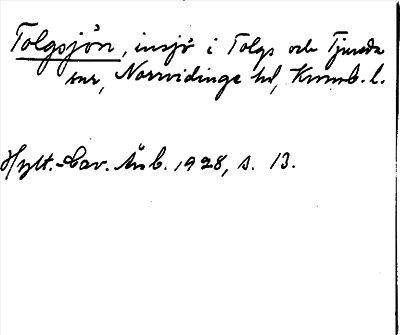 Tolgsjön, insjö i Tolgs och Tjureda
snr, Norrvidinge hd, Kronob. l.
Hylt.-Cav. Årsb. 1928, s. 13.